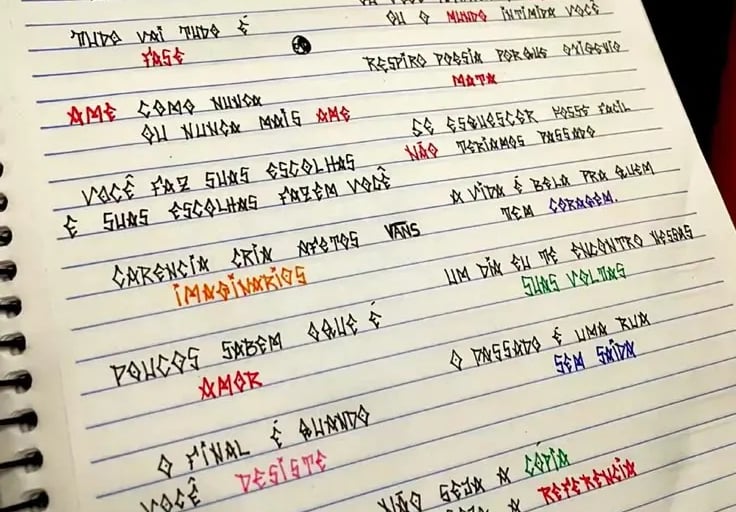 TUDO VAI TUDO É
FASE
AME COMO NUNCA
OU NUNCA MAIS AME
VOCÊ FAZ SUAS ESCOLHAS
E SUAS ESCOLHAS FAZEM VOCÊ
CARENCIA CRIA AFETOS VANS
IMAGINARIOS
POUCOS SABEM OQUE É
AMOR
O FINAL É QUANDO
VOCÊ DESISTE
OU O MUNDO INTIMIDA VOCÊ
RESPIRO POESIA PORQUE OXIGENIO
MATA
SE ESQUESCER FOSSE FACIL
NÃO TERIAMOS PASSADO
A VIDA É BELA PRA QUEM
TEM CORAGEM.
UM DIA EU TE ENCONTRO NESSAS
SUAS VOLTAS
O PASSADO É UMA RUA
SEM SAIDA
NÃO SEJA A CÓPIA
A REFERENCIA